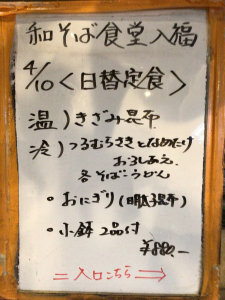 和そば食堂入福
4/10<日替定食>
温)きざみ昆布
冷)つるむらさきとなめたけ
おろしあえ
各そばorうどん
・おにぎり(明太昆布)
・小鉢 2品付
¥880.-
=入口こちら→